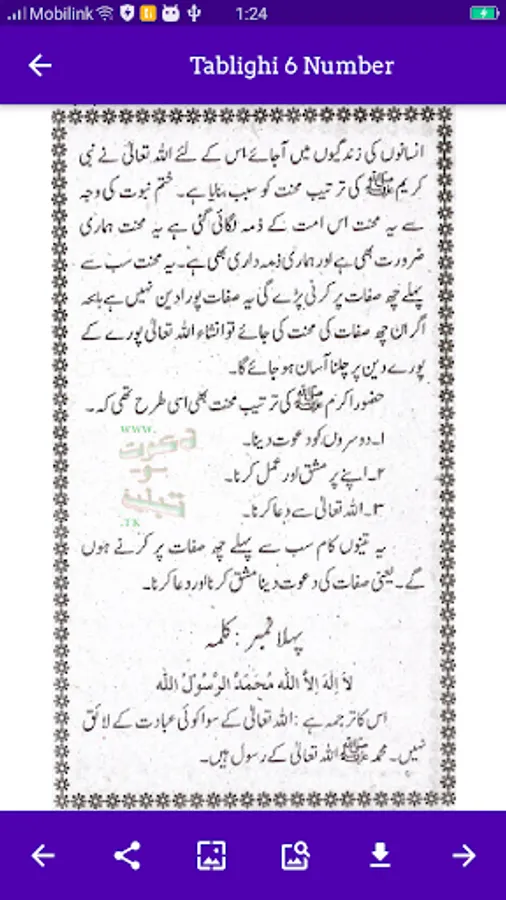 Mobilink 1:24
Tablighi 6 Number
انسانوں کی زندگیوں میں آجائے اس کے لئے اللہ تعالیٰ نے نبی
کریم ﷺ کی ترتیب محنت کو سبب بنایا ہے۔ ختم نبوت کی وجہ
سے یہ محنت اس امت کے ذمہ لگائی گئی ہے یہ محنت ہماری
ضرورت بھی ہے اور ہماری ذمہ داری بھی ہے۔ یہ محنت سب سے
پہلے چھ صفات پر کرنی پڑے گی یہ صفات پورا دین نہیں ہے بلکہ
اگر ان چھ صفات کی محنت کی جائے تو انشاء اللہ تعالیٰ پورے کے
پورے دین پر چلنا آسان ہو جائے گا۔
حضور اکرم ﷺ کی ترتیب محنت بھی اسی طرح تھی کہ۔
۱۔ دوسروں کو دعوت دینا۔
۲۔ اپنے پر مشق اور عمل کرنا۔
۳۔ اللہ تعالیٰ سے دعا کرنا۔
www.
دعوت
و
تبلیغ
.TK
یہ تینوں کام سب سے پہلے چھ صفات پر کرنے ہوں
گے۔ یعنی صفات کی دعوت دینا مشق کرنا اور دعا کرنا۔
پہلا نمبر : کلمہ
لَا اِلٰهَ اِلَّا اللّٰه مُحَمَّدٌ الرَّسُوْلُ اللّٰه
اس کا ترجمہ ہے : اللہ تعالیٰ کے سوا کوئی عبادت کے لائق
نہیں۔ محمد ﷺ اللہ تعالیٰ کے رسول ہیں۔